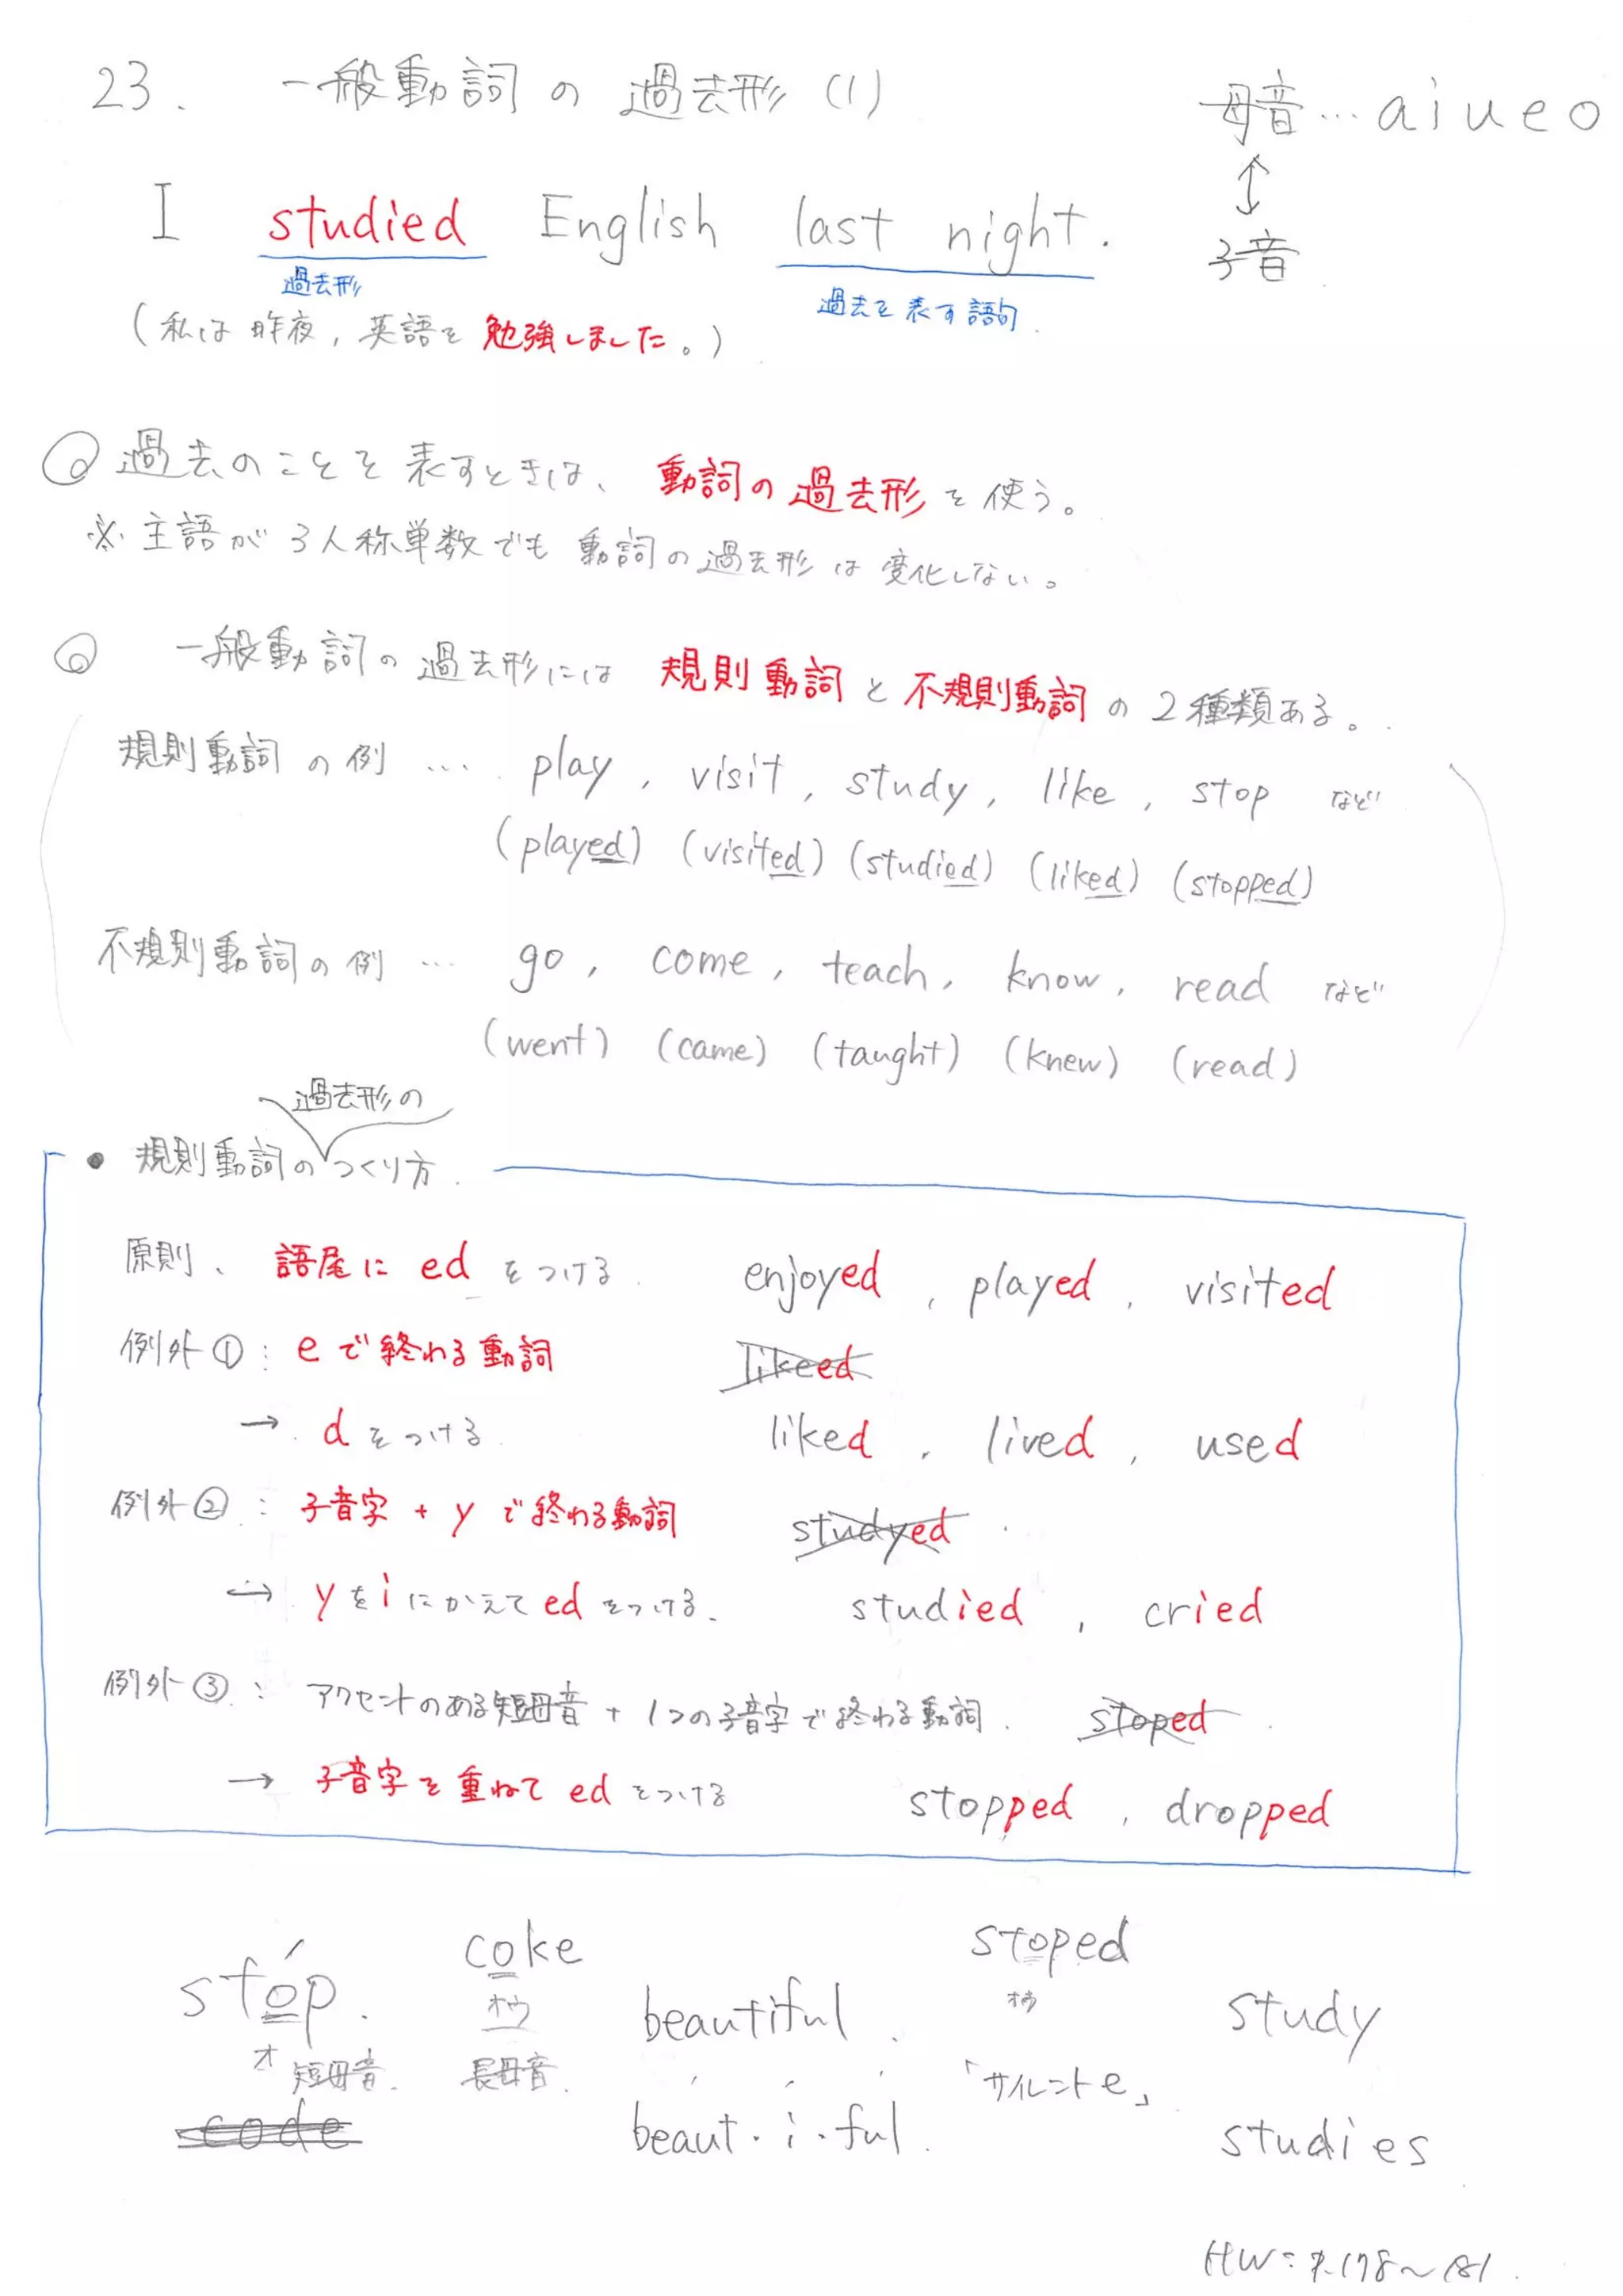 23. 一般動詞の過去形 (1)
母音…aiueo
↕
子音
I studied English last night.
過去形
過去を表す語句
(私は昨夜,英語を勉強しました。)
◎過去のことを表すときは、動詞の過去形を使う。
※主語が3人称単数でも動詞の過去形は変化しない。
◎ 一般動詞の過去形には規則動詞と不規則動詞の2種類ある。
規則動詞の例 … play, visit, study, like, stop など
(played) (visited) (studied) (liked) (stopped)
不規則動詞の例 … go, come, teach, know, read など
(went) (came) (taught) (knew) (read)
過去形の
• 規則動詞のつくり方.
原則、語尾に ed をつける. enjoyed, played, visited
例外①: eで終わる動詞 likeed
→ dをつける liked, lived, used
例外②: 子音字+yで終わる動詞 studyed
→ yをiにかえてedをつける. studied, cried
例外③: アクセントのある短母音+1つの子音字で終わる動詞. stoped
→ 子音字を重ねてedをつける stopped, dropped
stóp.
オ 短母音.
code
coke
オウ
長母音.
beautiful.
beaut・i・ful.
stoped
オウ
「サイレントe」
study
studies
HW: P.178~181.